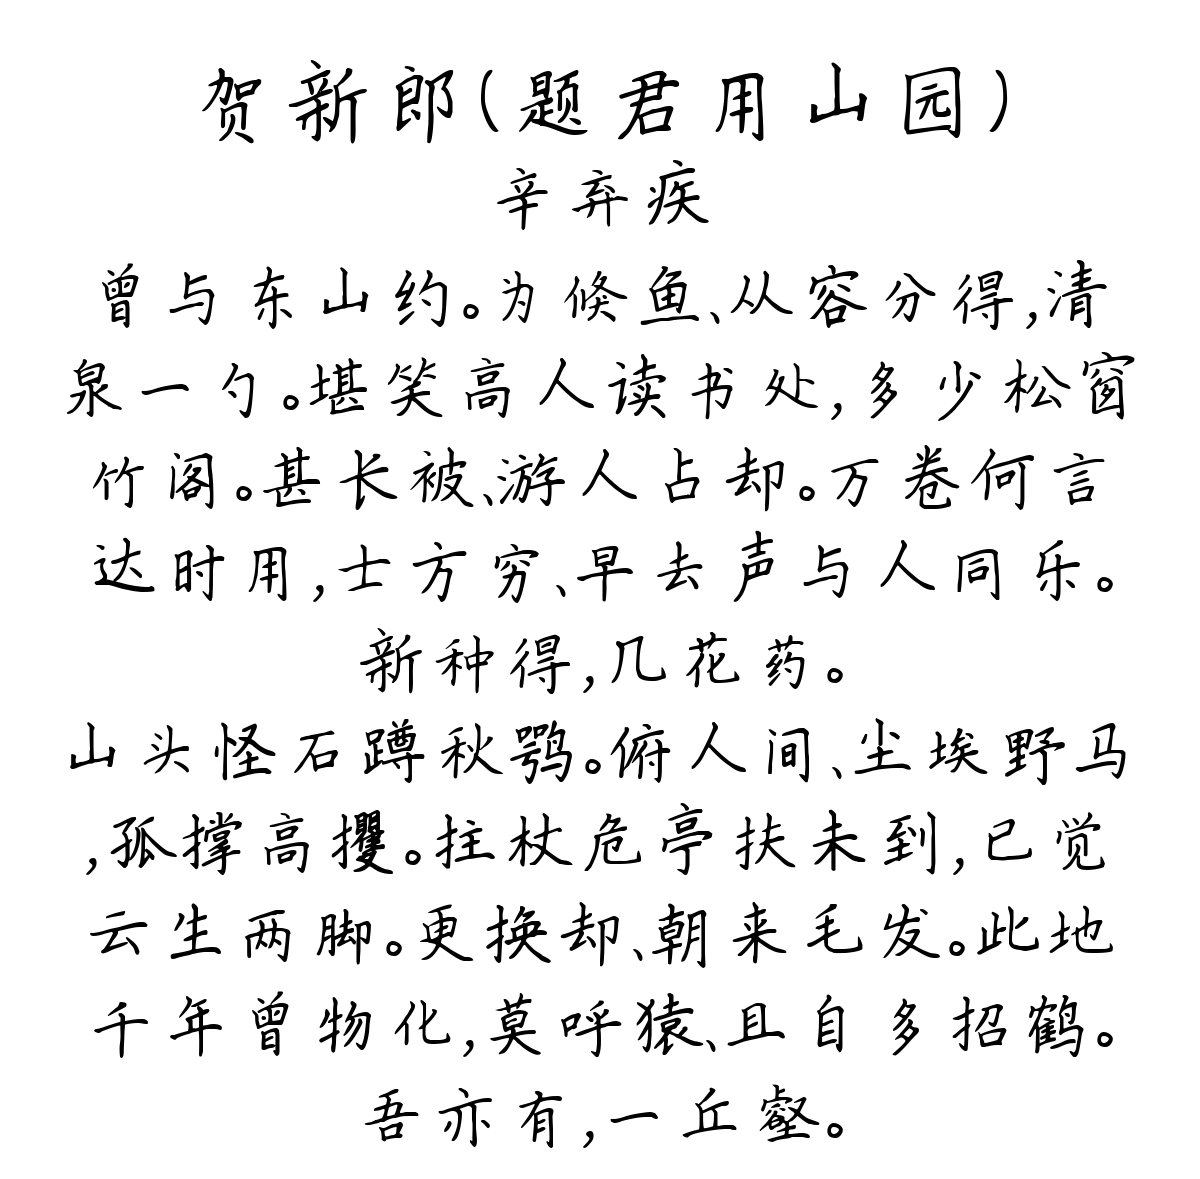 贺新郎(题君用山园)
辛弃疾
曾与东山约。为倏鱼、从容分得,清
泉一勺。堪笑高人读书处,多少松窗
竹阁。甚长被、游人占却。万卷何言
达时用,士方穷、早去声与人同乐。
新种得,几花药。
山头怪石蹲秋鹗。俯人间、尘埃野马
,孤撑高攫。拄杖危亭扶未到,已觉
云生两脚。更换却、朝来毛发。此地
千年曾物化,莫呼猿、且自多招鹤。
吾亦有,一丘壑。